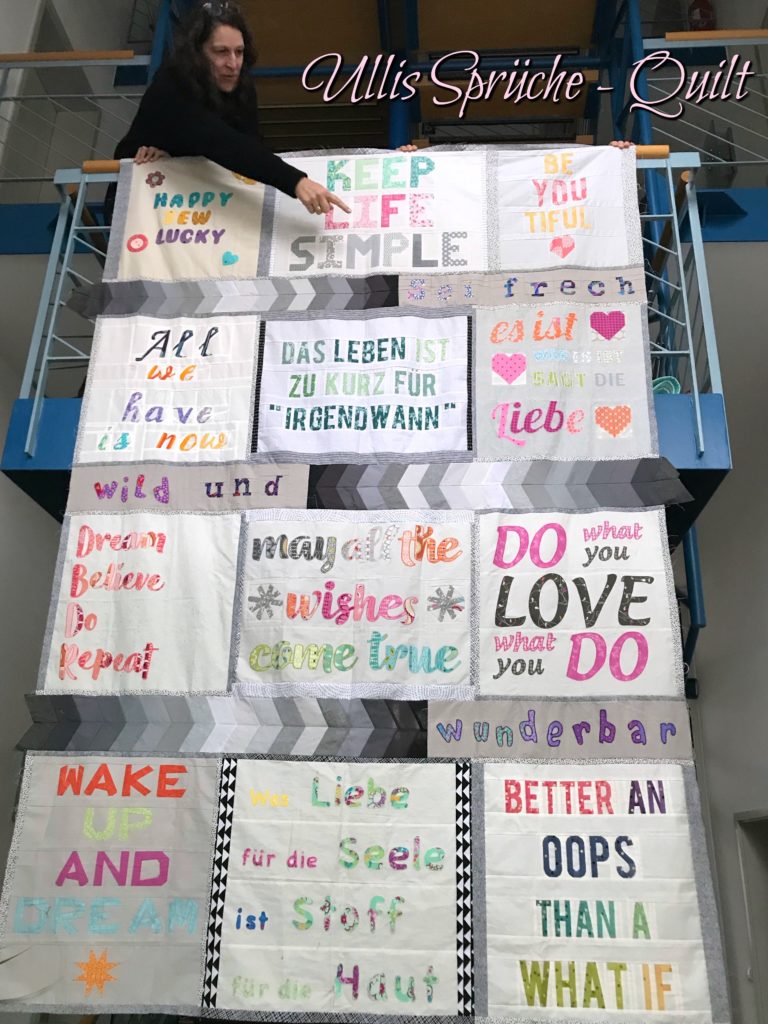 Ullis Sprüche - Quilt
HAPPY
NEW
LUCKY
KEEP
LIFE
SIMPLE
BE
YOU
TIFUL
Sei frech
All
we
have
is now
DAS LEBEN IST
ZU KURZ FÜR
"IRGENDWANN"
es ist
WAS ES IST
SAGT DIE
Liebe
wild und
Dream
Believe
Do
Repeat
may all the
wishes
come true
DO what
you
LOVE
what
you DO
wunderbar
WAKE
UP
AND
DREAM
Was Liebe
für die Seele
ist Stoff
für die Haut
BETTER AN
OOPS
THAN A
WHAT IF